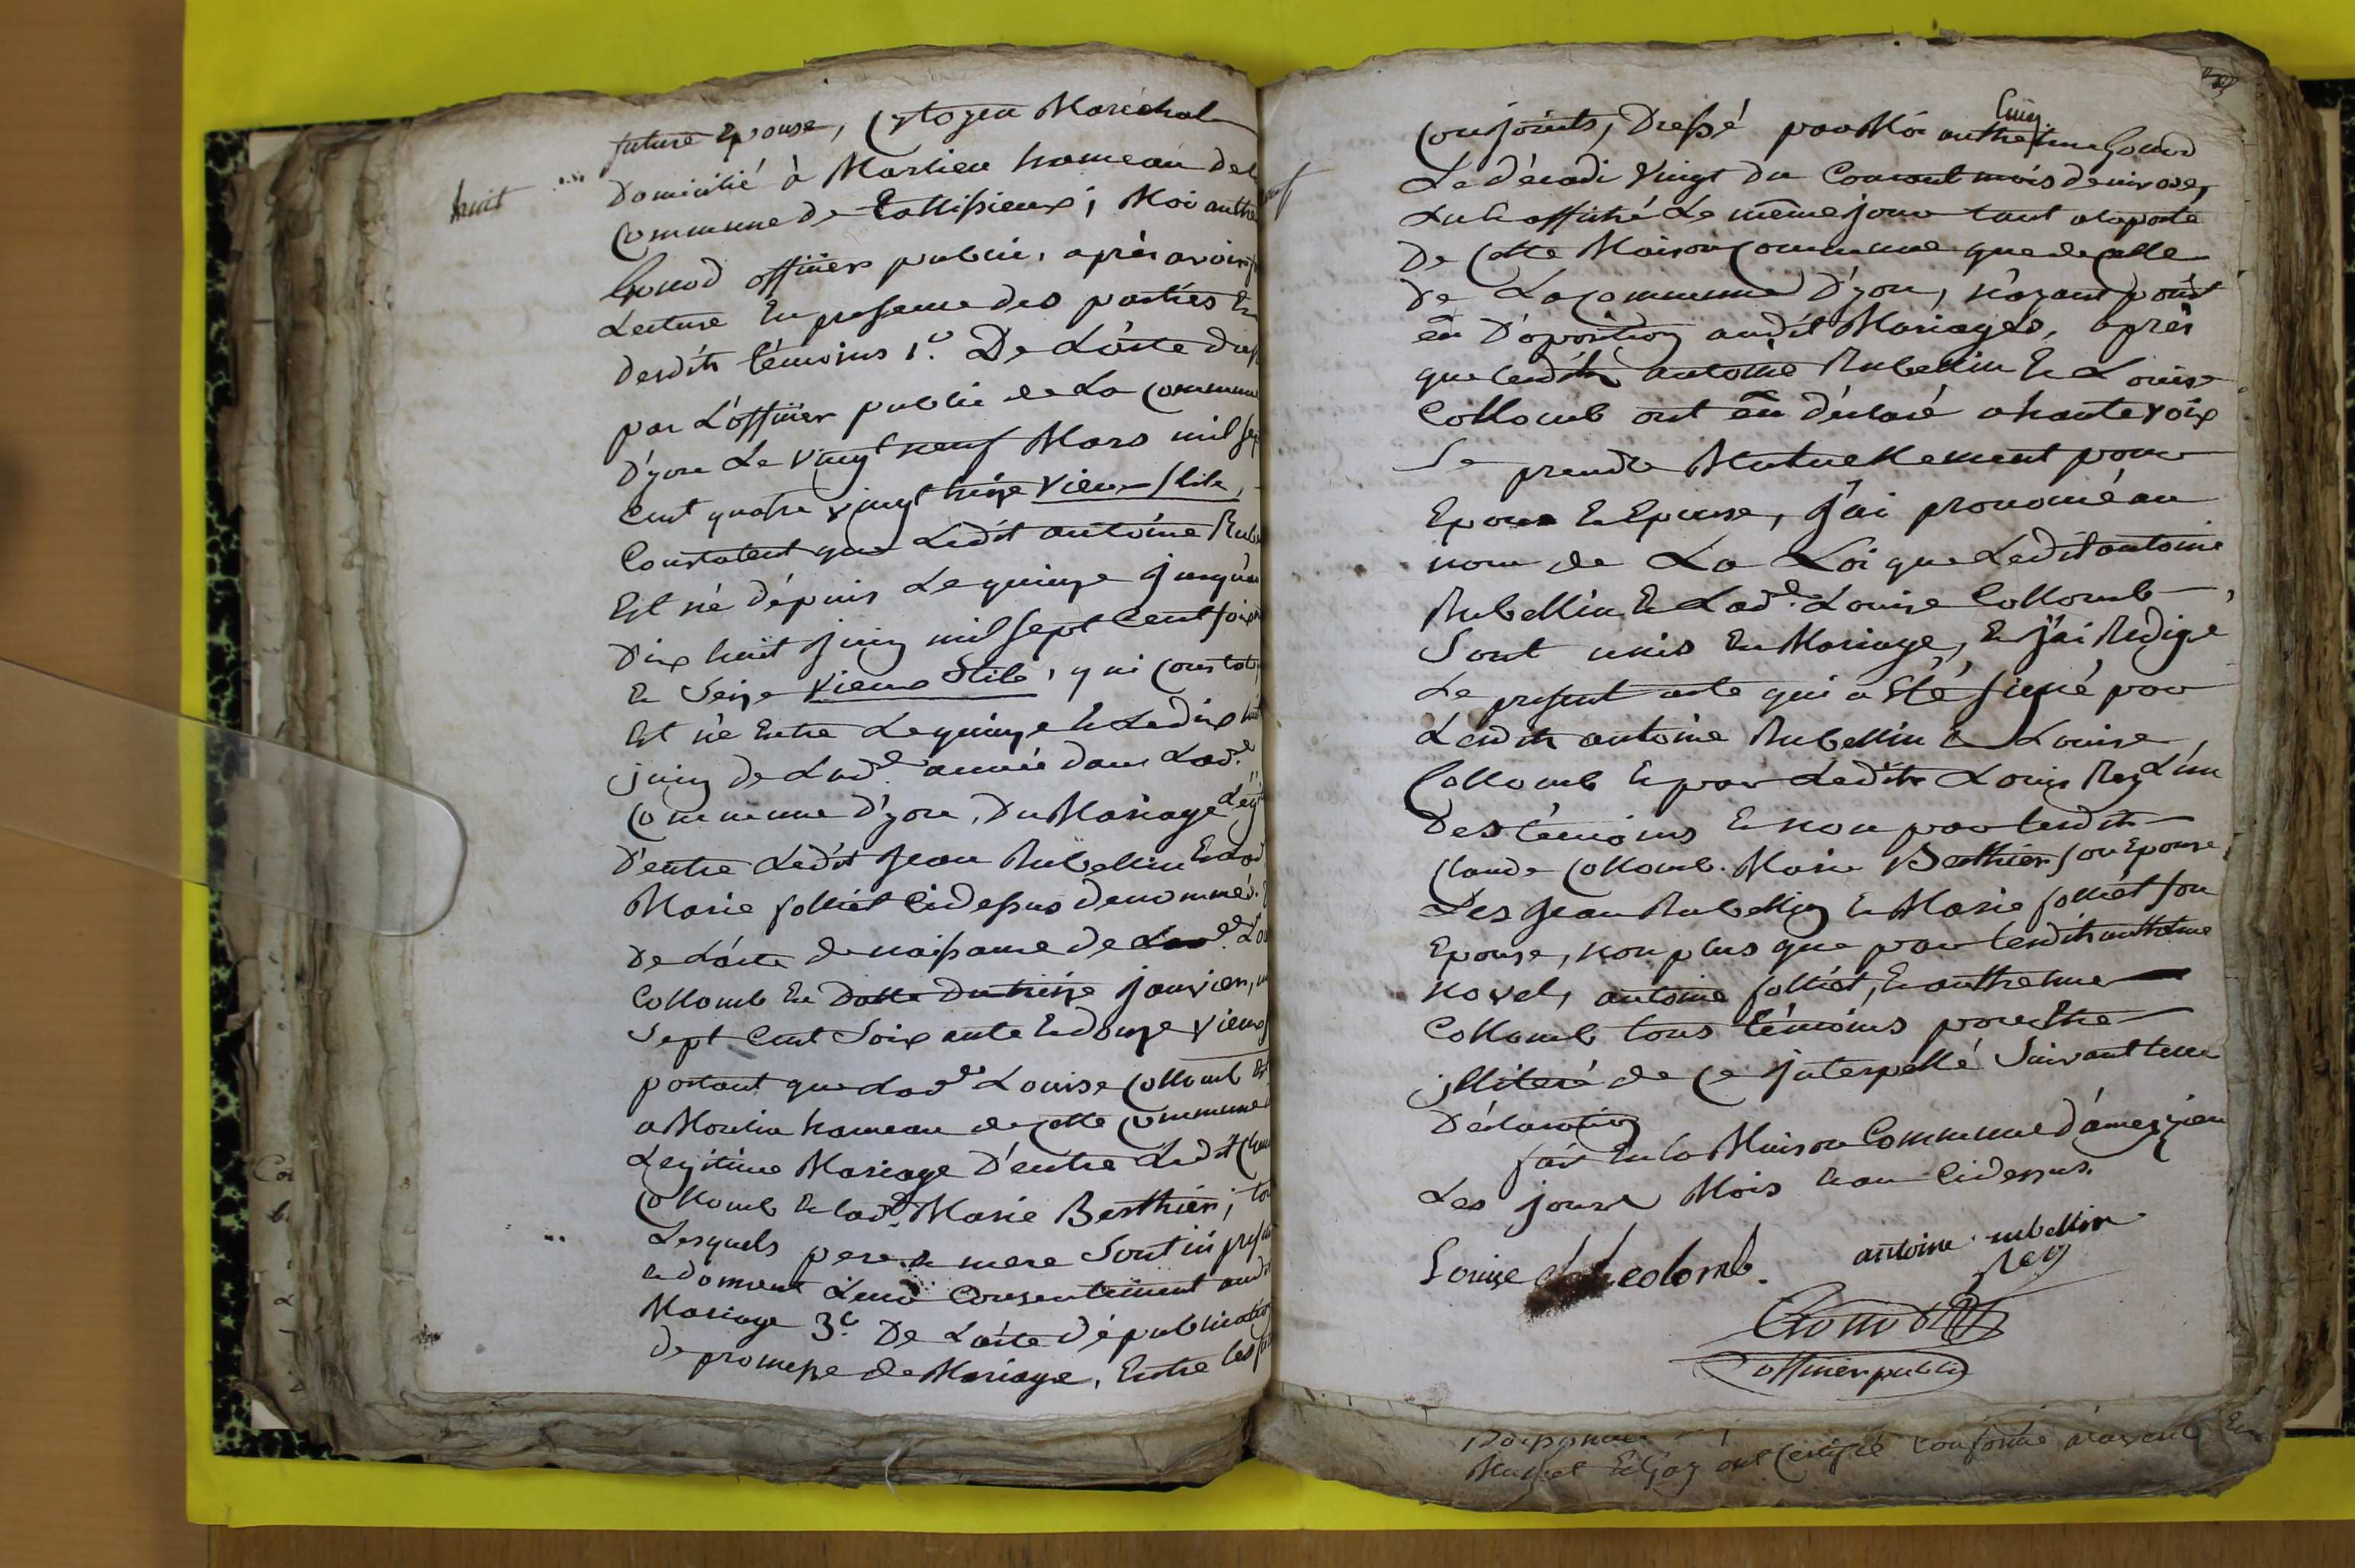 huit
future Epouse, Cytoyen Maréchal
Domicilié à Marlieu hameau de l
Commune de Tallissieux; Moi anthe
Gonod offiiers public, après avoir f
Lecture En presence des parties En
desdits témoins 1.º De L'acte dress
par L'offiier public de La Commun
D'yon Le vingt neuf Mars mil sep
Cent quatre vingt treize vieux Stile,
Constatent que Ledit antoine Rub
Est né dépuis Le quinze jusqu'au
Dix huit juin mil sept Cent soix
Et Seize vieux Stile, qui Consta
Est né Entre Le quinze Et Le dix huit
juin de Lad.e année dans Lad.e
Commune d'yon, Du Mariage Legi
D'entre Ledit Jean Rubellin Et Lad
Marie jolliet Cidessus dénommés.
De L'acte de naissance de Lad.e Lou
Collomb En Datte Du treize janvier, m
Sept Cent Soixante Et douze vieux
portant que Lad.e Louise Collomb Est
a Moulin hameau de Cette Commune
Legitime Mariage D'entre Ledit Clau
Collomb Et lad.e Marie Berthier; to
Lesquels pere Et mere Sont ici presen
Et donnent Leurs Consentement audit
Mariage 3.º De L'acte dépublication
de promesse de Mariage, Entre les fu
Conjoints, Dressé par Moi anthelme Gonod
Le décadi Vingt du Courant mois de nivose,
Lu Et affiché Le même jour tant a la porte
De Cette Maison Commune que de Celle
De La Commune D'yon, n'ayant point
eu D'oposition audit Mariages, après
que lesdits antoine Rubellin Et Louise
Collomb ont eu déclaré a haute voix
Se prendre Mutuellement pour
Epoux Et Epouse, j'ai prononcé au
nom de La Loi que Ledit antoine
Rubellin Et Lad.e Louise Collomb,
Sont unis En Mariage, Et j'ai Redigé
Le present acte qui a Eté signé par
Lesdits antoine Rubellin Et Louise
Collomb Et par Ledit Louis Rey L'un
Des témoins Et non par lesdits
Claude Collomb. Marie Berthier son Epouse,
Les Jean Rubellin Et Marie jolliet son
Epouse, non plus que par lesdits anthelme
novel, antoine jolliet, Et anthelme
Collomb tous témoins pour Etre
jlliteré de Ce jnterpellé Suivant leur
Déclaration
fait En la Maison Commune d'ameyzieu
Les jours Mois Et an Cidessus.
Louise colomb. antoine rubellin
Rey
Gonod
offiier public
ont Certifié Conforme